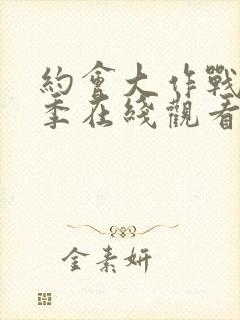 約會大作戰
季在綫觀看
金素妍